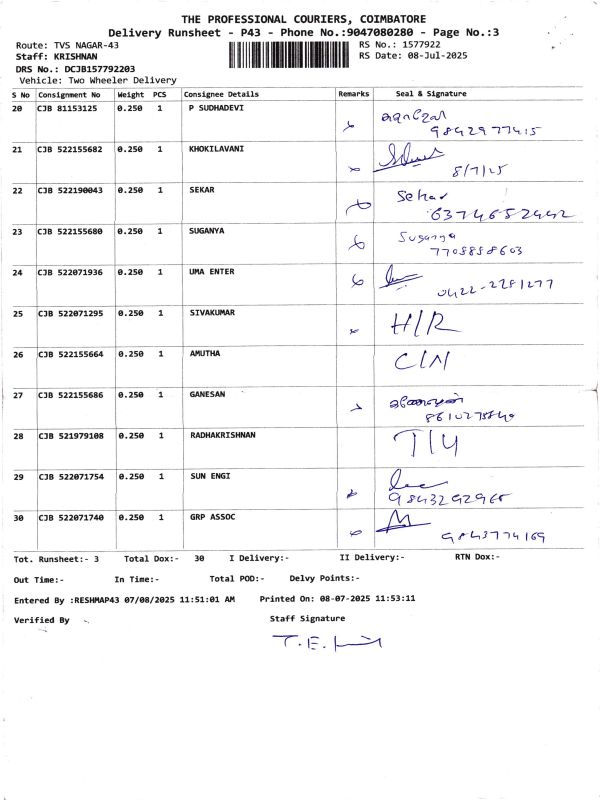 THE PROFESSIONAL COURIERS, COIMBATORE
Delivery Runsheet - P43 - Phone No.:9047080280 - Page No.:3
Route: TVS NAGAR-43
RS No.: 1577922
Staff: KRISHNAN
RS Date: 08-Jul-2025
DRS No.: DCJB157792203
Vehicle: Two Wheeler Delivery
S No Consignment No Weight PCS Consignee Details Remarks Seal & Signature
20 CJB 81153125 0.250 1 P SUDHADEVI
9842977415
21 CJB 522155682 0.250 1 KHOKILAVANI
8/7/25
22 CJB 522190043 0.250 1 SEKAR Sekar
6374652442
23 CJB 522155680 0.250 1 SUGANYA Suganya
7708858603
24 CJB 522071936 0.250 1 UMA ENTER
0422-2281277
25 CJB 522071295 0.250 1 SIVAKUMAR H/R
26 CJB 522155664 0.250 1 AMUTHA C/N
27 CJB 522155686 0.250 1 GANESAN
28 CJB 521979108 0.250 1 RADHAKRISHNAN
29 CJB 522071754 0.250 1 SUN ENGI
30 CJB 522071740 0.250 1 GRP ASSOC
9843774169
Tot. Runsheet:- 3 Total Dox:- 30 I Delivery:- II Delivery:- RTN Dox:-
Out Time:- In Time:- Total POD:- Delvy Points:-
Entered By :RESHMAP43 07/08/2025 11:51:01 AM Printed On: 08-07-2025 11:53:11
Verified By Staff Signature